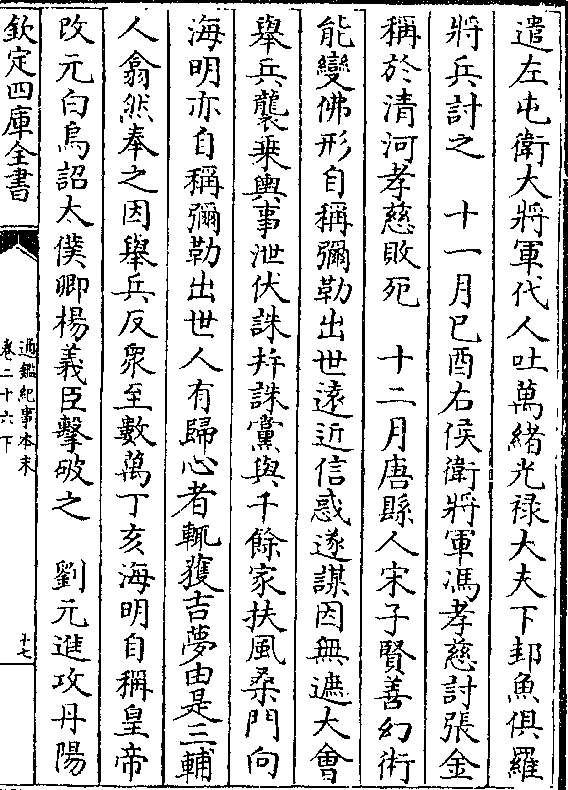 遣左屯衛大將軍代人吐萬緒光禄大夫下邽魚俱羅
將兵討之　十一月己酉右侯衛將軍馮孝慈討張金
稱於清河孝慈敗死　十二月唐縣人宋子賢善幻術
能變佛形自稱彌勒出世遠近信惑遂謀因無遮大會
舉兵襲乗輿事泄伏誅并誅黨與千餘家扶風桑門向
海明亦自稱彌勒出世人有歸心者輒獲吉夢由是三輔
人翕然奉之因舉兵反衆至數萬丁亥海明自稱皇帝
改元白烏詔太僕卿楊義臣擊破之　劉元進攻丹陽
欽定四庫全書
通鑑紀事本末
卷二十六下
十七